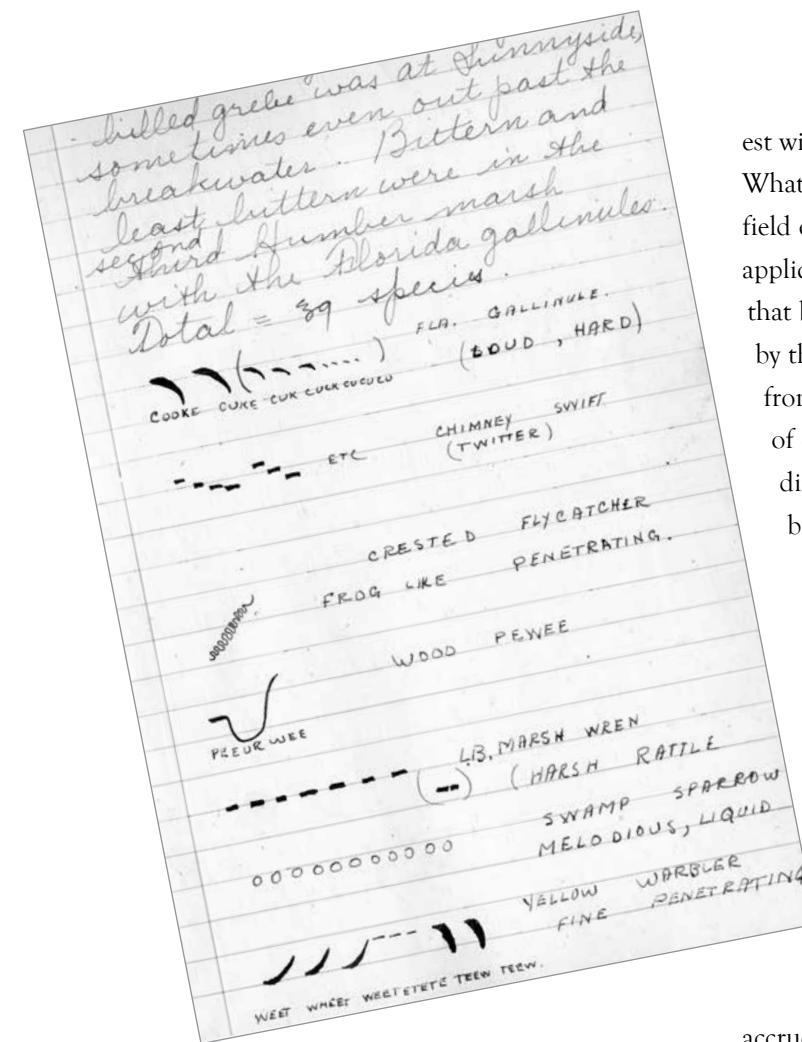 billed grebe was at Sunnyside,
sometimes even out past the
breakwater. Bittern and
least bittern were in the
second
third Humber marsh
with the Florida gallinules.
Total = 39 species.
FLA. GALLINULE.
(LOUD, HARD)
COOKE CUKE CUK CUCK CUCUCU
ETC CHIMNEY SWIFT
(TWITTER)
CRESTED FLYCATCHER
FROG LIKE PENETRATING.
WOOD PEWEE
PEEUR WEE
L.B. MARSH WREN
(HARSH RATTLE
SWAMP SPARROW
MELODIOUS, LIQUID
YELLOW WARBLER
FINE PENETRATING
WEET WHEET WEETETETE TEEW TEEW.
est wi
What
field
applic
that b
by th
from
of
di
b
accru